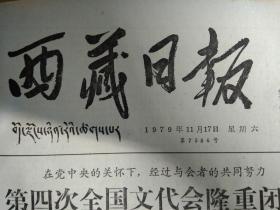 西藏日报
1979年11月17日 星期六
第7586号
在党中央的关怀下，经过与会者的共同努力
第四次全国文代会隆重闭